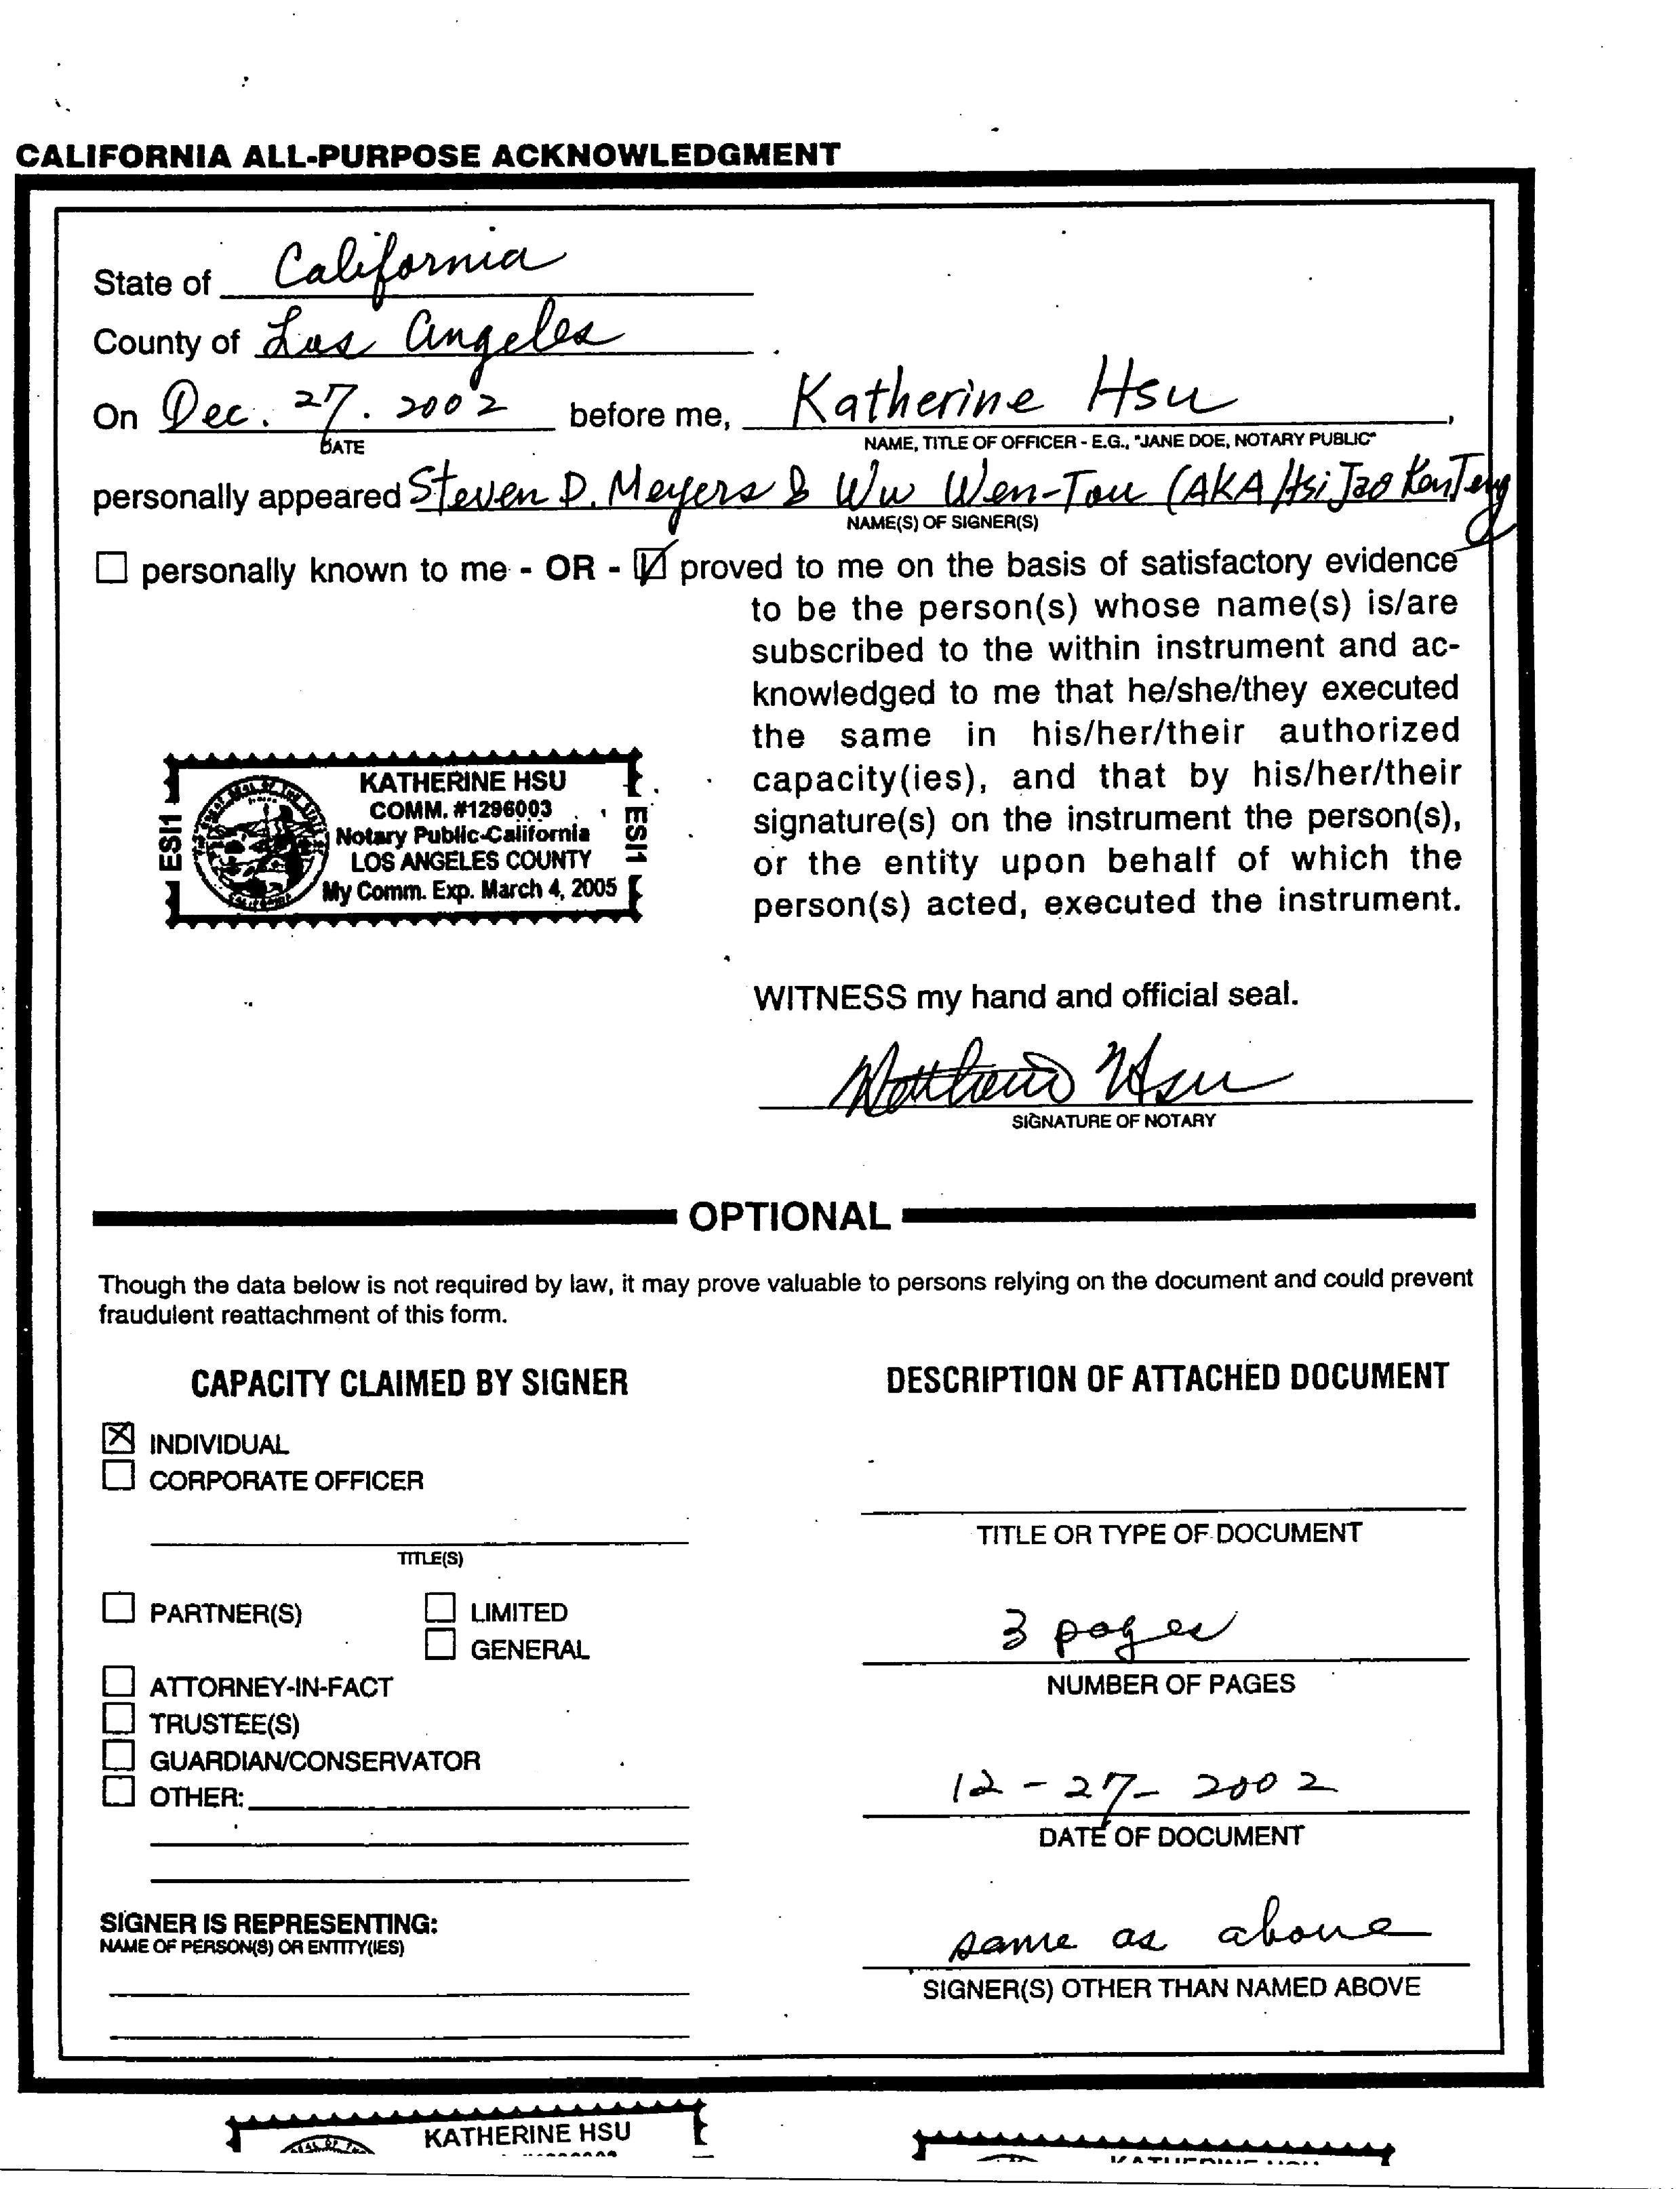 CALIFORNIA ALL-PURPOSE ACKNOWLEDGMENT
State of California
County of Los Angeles
On Dec. 27. 2002 before me, Katherine Hsu,
DATE
NAME, TITLE OF OFFICER - E.G., "JANE DOE, NOTARY PUBLIC"
personally appeared Steven D. Meyers & Wu Wen-Tou (AKA Hsi Jao Kan Teng
NAME(S) OF SIGNER(S)
personally known to me - OR - proved to me on the basis of satisfactory evidence
to be the person(s) whose name(s) is/are
subscribed to the within instrument and ac-
knowledged to me that he/she/they executed
the same in his/her/their authorized
capacity(ies), and that by his/her/their
signature(s) on the instrument the person(s),
or the entity upon behalf of which the
person(s) acted, executed the instrument.
KATHERINE HSU
COMM. #1296003
Notary Public-California
LOS ANGELES COUNTY
My Comm. Exp. March 4, 2005
ESI1
ESI1
WITNESS my hand and official seal.
Hsu
SIGNATURE OF NOTARY
OPTIONAL
Though the data below is not required by law, it may prove valuable to persons relying on the document and could prevent
fraudulent reattachment of this form.
CAPACITY CLAIMED BY SIGNER
INDIVIDUAL
CORPORATE OFFICER
TITLE(S)
PARTNER(S)
LIMITED
GENERAL
ATTORNEY-IN-FACT
TRUSTEE(S)
GUARDIAN/CONSERVATOR
OTHER:
SIGNER IS REPRESENTING:
NAME OF PERSON(S) OR ENTITY(IES)
DESCRIPTION OF ATTACHED DOCUMENT
TITLE OR TYPE OF DOCUMENT
3 pages
NUMBER OF PAGES
12-27-2002
DATE OF DOCUMENT
same as above
SIGNER(S) OTHER THAN NAMED ABOVE
KATHERINE HSU